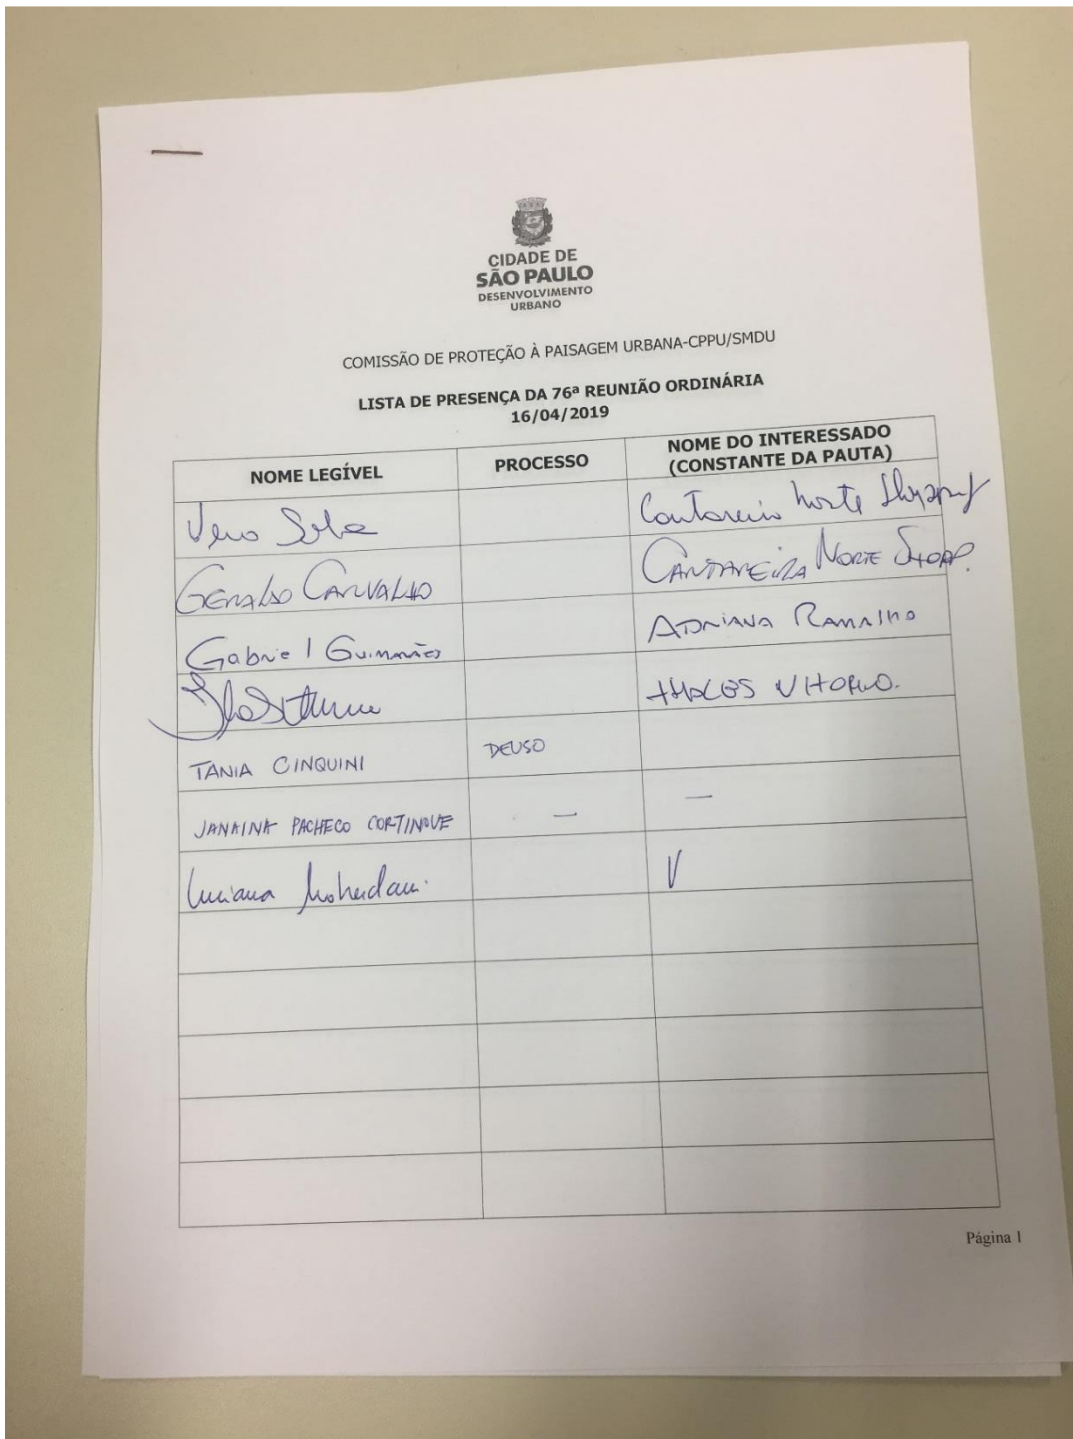 CIDADE DE
SÃO PAULO
DESENVOLVIMENTO
URBANO
COMISSÃO DE PROTEÇÃO À PAISAGEM URBANA-CPPU/SMDU
LISTA DE PRESENÇA DA 76ª REUNIÃO ORDINÁRIA
16/04/2019
NOME LEGÍVEL PROCESSO NOME DO INTERESSADO
(CONSTANTE DA PAUTA)
Norte
GERALDO CARVALHO CANTAREIRA NORTE SHOPP.
Gabriel Guimarães ADRIANA RAMALHO
TANIA CINQUINI DEUSO
JANAINA PACHECO CORTINOVE — —
Luciana
Página 1